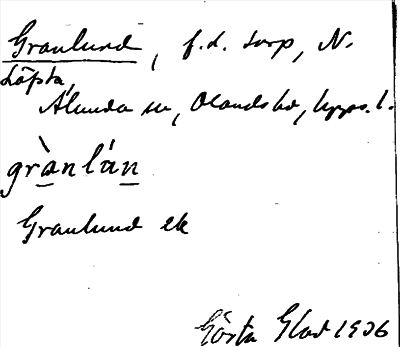 Granlund, f.d. torp, N.
Löpsta,
Alunda sn, Olands hd, Upps. l.
grànlán
Granlund ek
Gösta Glad 1936